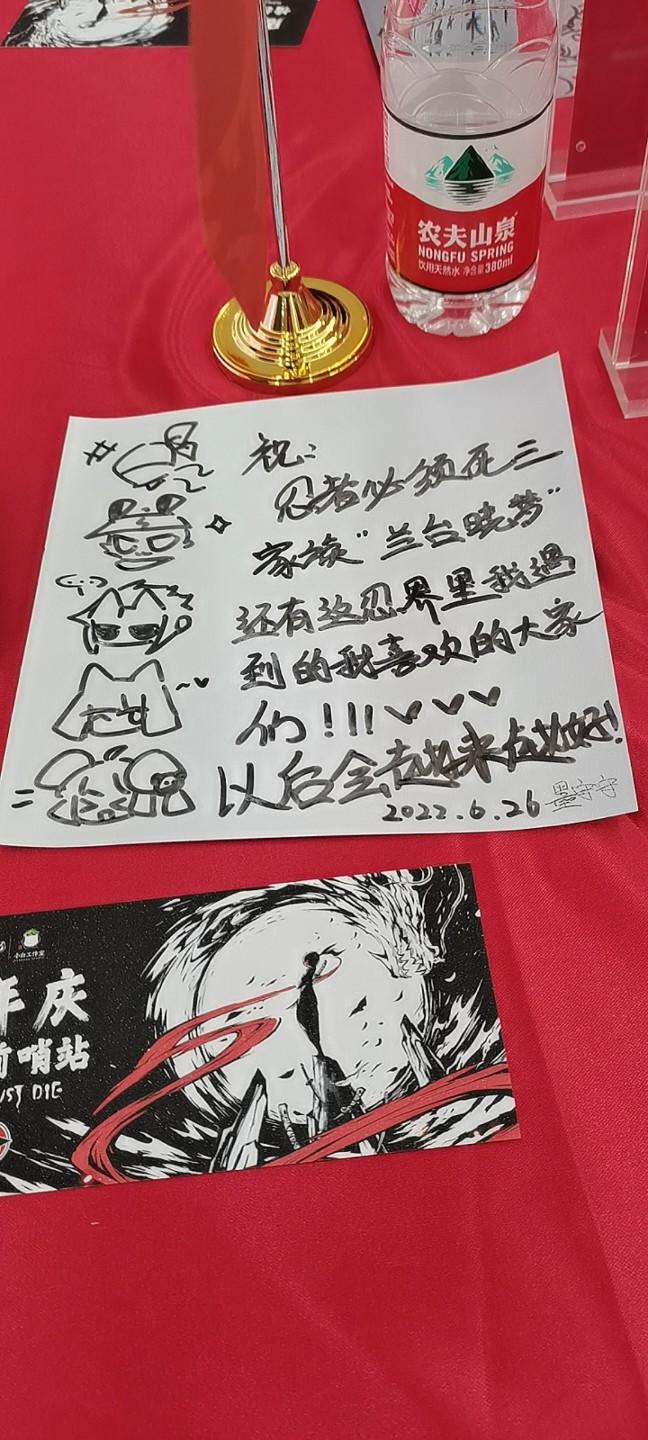 农夫山泉
NONGFU SPRING
饮用天然水 净含量380ml
祝:
忍者必须死三
家族"兰台映梦"
还有这忍界里我遇
到的我喜欢的大家
们!!!
以后会越来越好!
2022.6.26 墨守守
小白工作室
年庆
前哨站
UST DIE